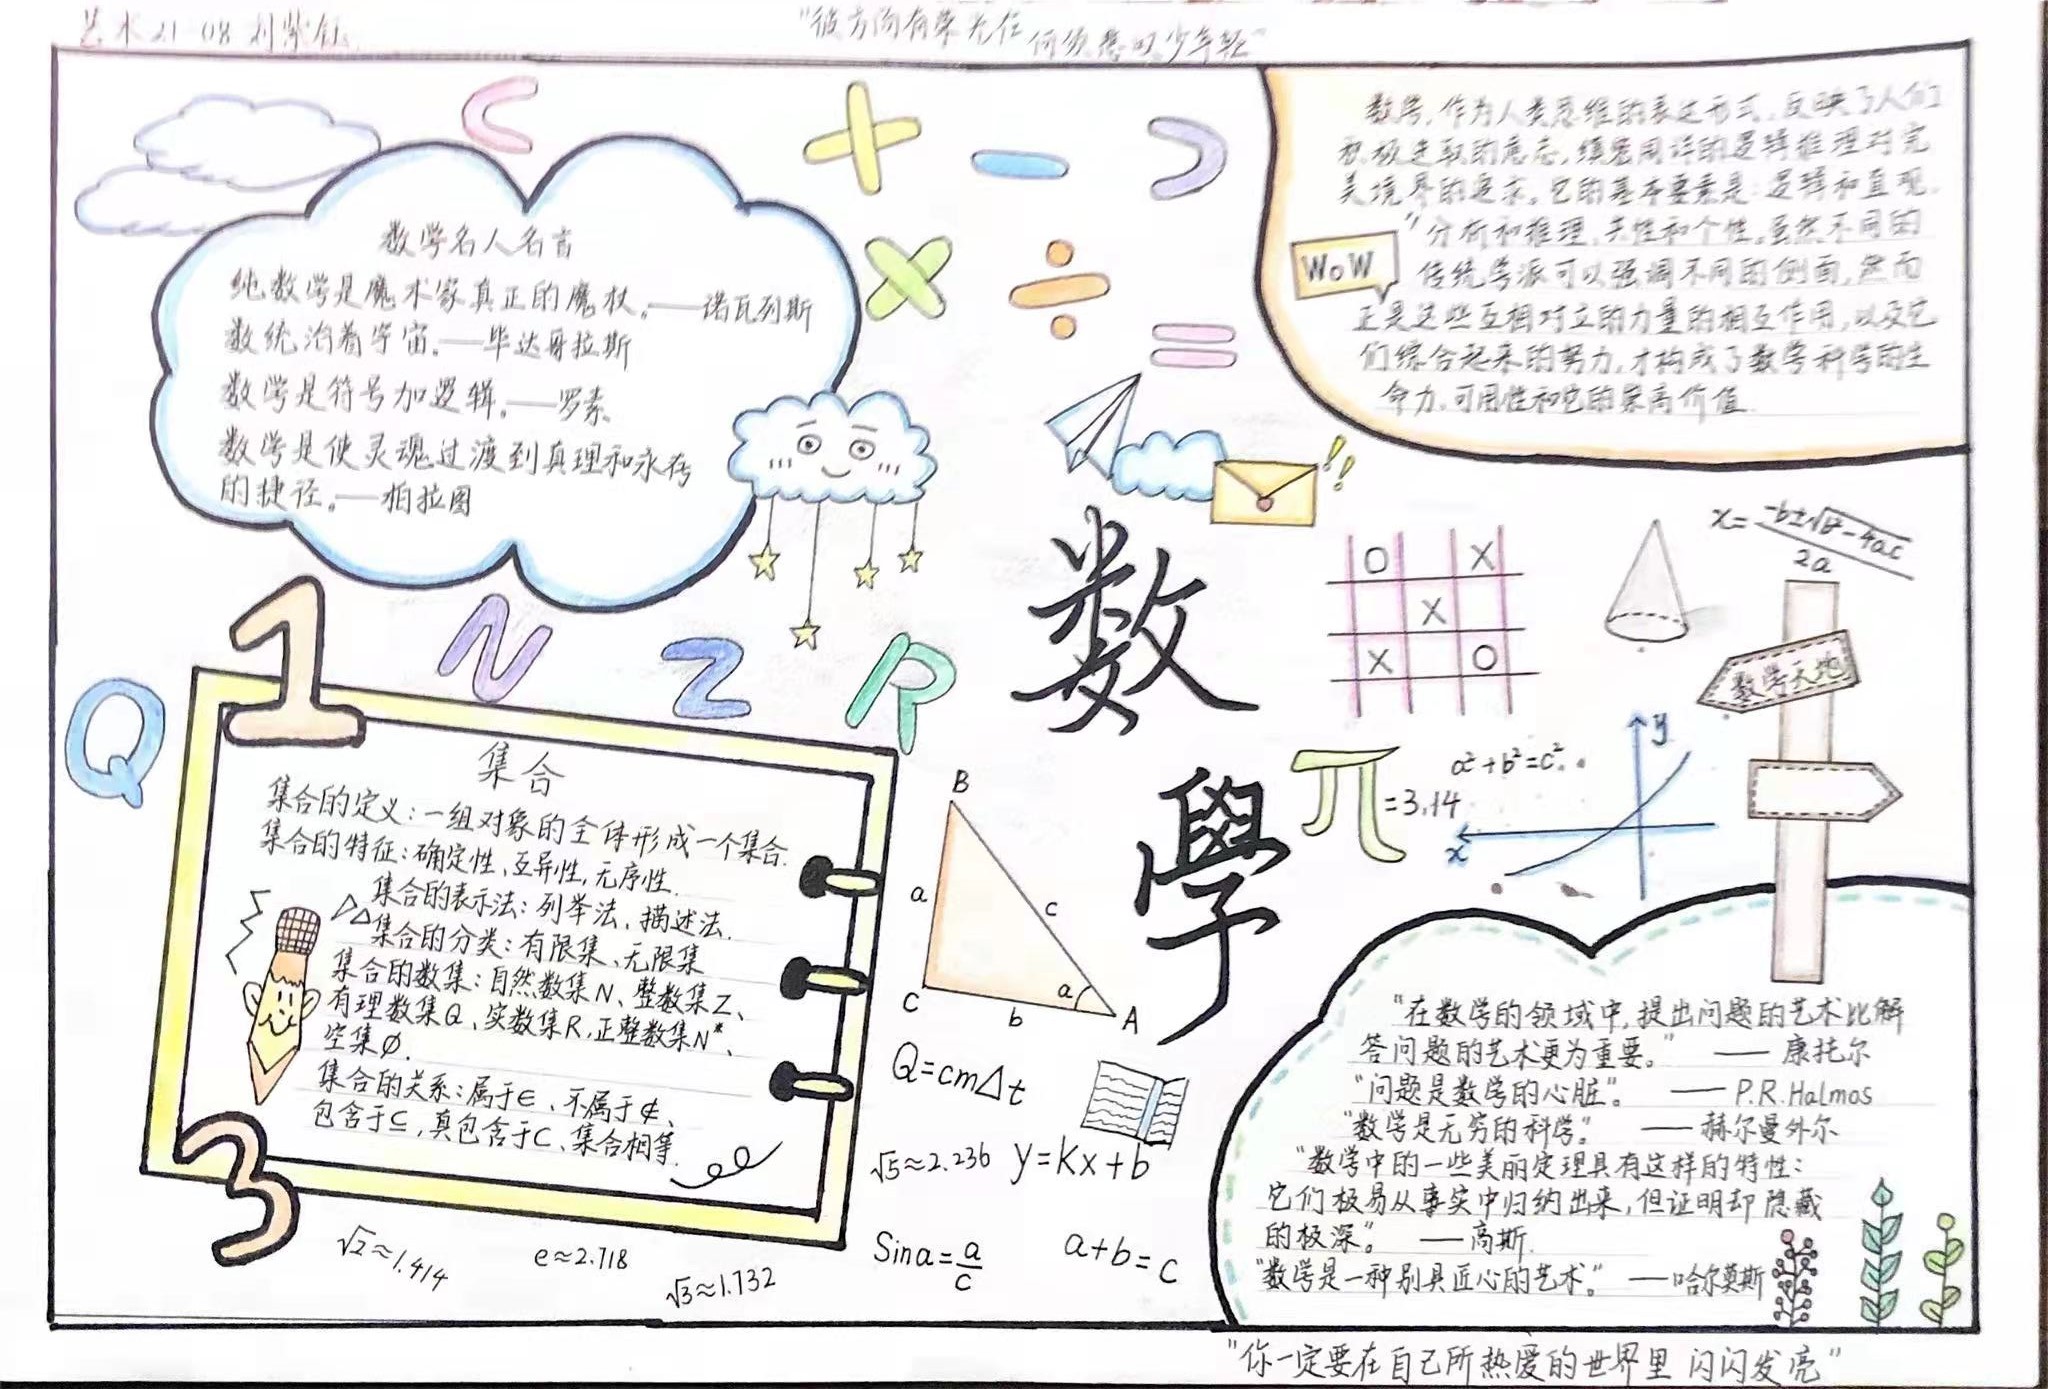 艺术21-08 刘紫钰
"彼方尚有荣光在
何须悲叹少年轻"
C
+ − ⊃
× ÷ =
数学名人名言
纯数学是魔术家真正的魔杖。——诺瓦列斯
数统治着宇宙。——毕达哥拉斯
数学是符号加逻辑。——罗素
数学是使灵魂过渡到真理和永存
的捷径。——柏拉图
数学,作为人类思维的表达形式,反映了人们
积极进取的意志,缜密周详的逻辑推理对完
美境界的追求。它的基本要素是:逻辑和直观、
"分析和推理、共性和个性。虽然不同的
传统学派可以强调不同的侧面,然而
正是这些互相对立的力量的相互作用,以及它
们综合起来的努力,才构成了数学科学的生
命力,可用性和它的崇高价值.
WoW
数
學
O X
X
X O
x=-b±√b²-4ac/2a
数学天地
1
N Z R
Q
集合
集合的定义:一组对象的全体形成一个集合.
集合的特征:确定性、互异性,无序性.
集合的表示法:列举法、描述法.
△△集合的分类:有限集、无限集
集合的数集:自然数集N、整数集Z、
有理数集Q、实数集R,正整数集N*、
空集∅.
集合的关系:属于∈、不属于∉、
包含于⊆,真包含于⊂、集合相等.
3
B
a c
C b a A
π=3.14
a²+b²=c².
y
x
Q=cmΔt
√5≈2.236 y=kx+b
√2≈1.414
e≈2.718
√3≈1.732
Sina=a/c
a+b=c
"在数学的领域中,提出问题的艺术比解
答问题的艺术更为重要。" —— 康托尔
"问题是数学的心脏"。 —— P.R.Halmos
"数学是无穷的科学"。 —— 赫尔曼外尔
"数学中的一些美丽定理具有这样的特性:
它们极易从事实中归纳出来,但证明却隐藏
的极深"。 ——高斯.
"数学是一种别具匠心的艺术." ——哈尔莫斯
"你一定要在自己所热爱的世界里 闪闪发亮"